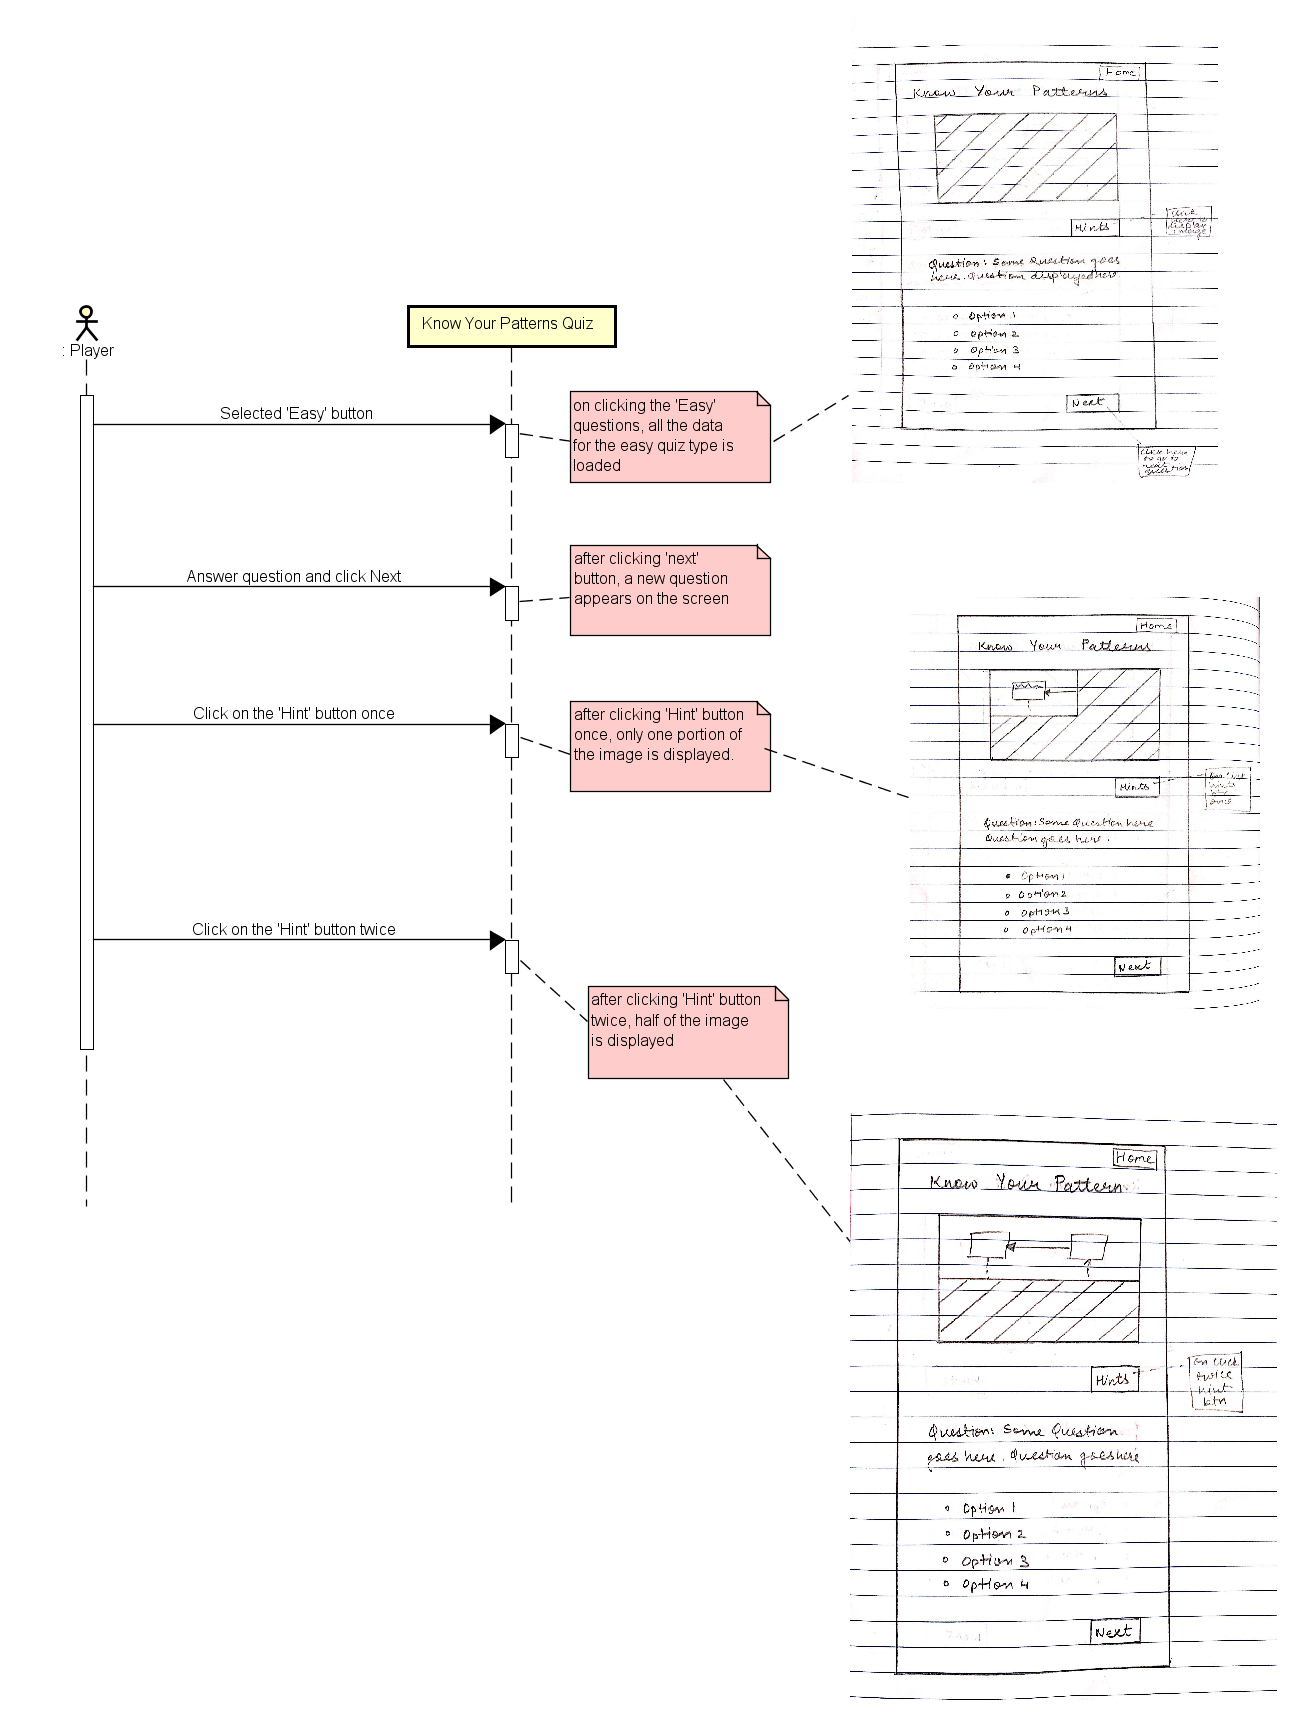 : Player
Know Your Patterns Quiz
Selected 'Easy' button
on clicking the 'Easy'
questions, all the data
for the easy quiz type is
loaded
Answer question and click Next
after clicking 'next'
button, a new question
appears on the screen
Click on the 'Hint' button once
after clicking 'Hint' button
once, only one portion of
the image is displayed.
Click on the 'Hint' button twice
after clicking 'Hint' button
twice, half of the image
is displayed
Home
Know Your Patterns
Hints
display
image
Question: Some Question goes
here. Question displayed here
Option 1
Option 2
Option 3
Option 4
Next
click here
to go to
next
question
Home
Know Your Patterns
Hints
once
Question: Some Question here
Question goes here.
Option 1
Option 2
Option 3
Option 4
Next
Home
Know Your Pattern
Hints
on click
twice
hint
btn
Question: Some Question
goes here. Question goes here
Option 1
Option 2
Option 3
Option 4
Next